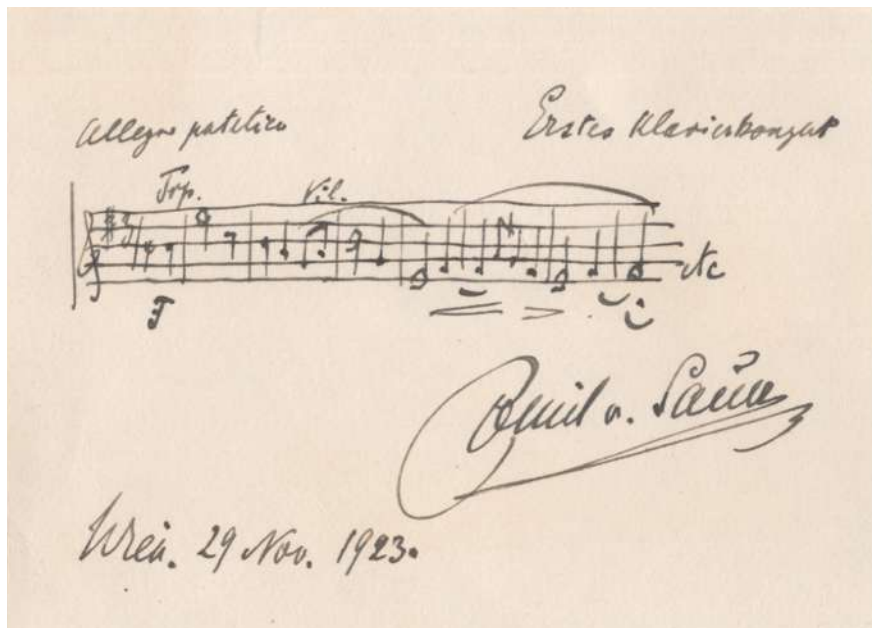 Allegro patetico Erstes Klavierkonzert
Trp. Viol.
etc
f
Emil v. Sauer
Wien. 29 Nov. 1923.